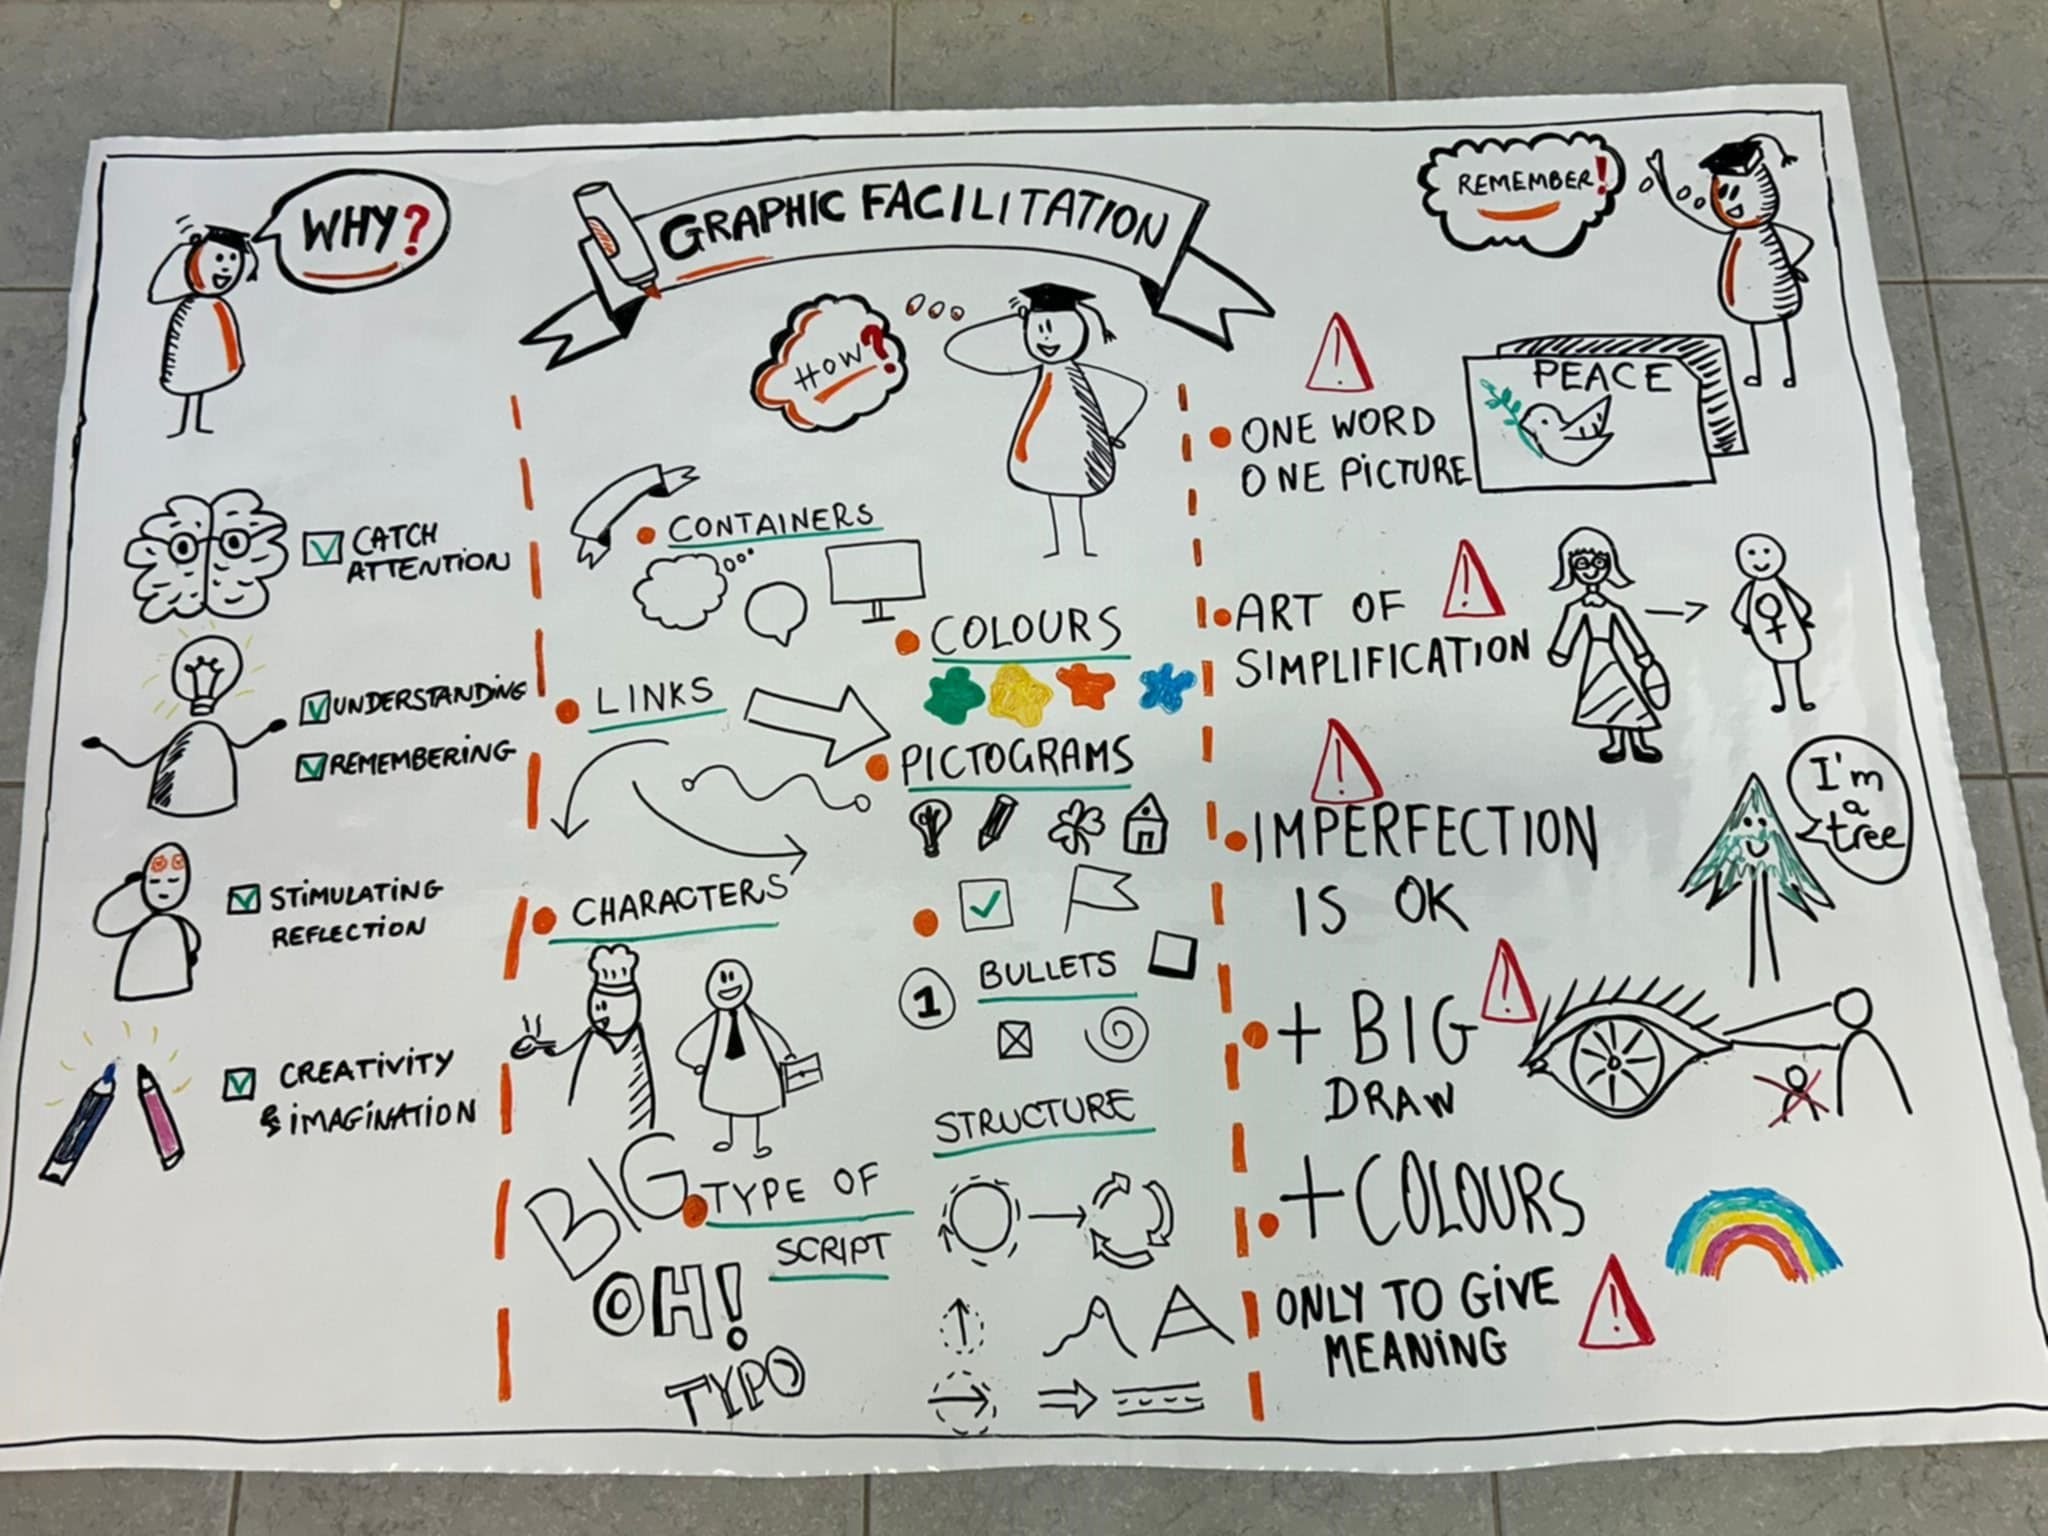 GRAPHIC FACILITATION
WHY?
CATCH
ATTENTION
UNDERSTANDING
REMEMBERING
STIMULATING
REFLECTION
CREATIVITY
& IMAGINATION
HOW?
CONTAINERS
COLOURS
LINKS
PICTOGRAMS
CHARACTERS
1
BULLETS
STRUCTURE
BIG
TYPE OF
SCRIPT
OH!
TYPO
REMEMBER!
ONE WORD
ONE PICTURE
PEACE
ART OF
SIMPLIFICATION
IMPERFECTION
IS OK
I'm
a
tree
+ BIG
DRAW
+ COLOURS
ONLY TO GIVE
MEANING